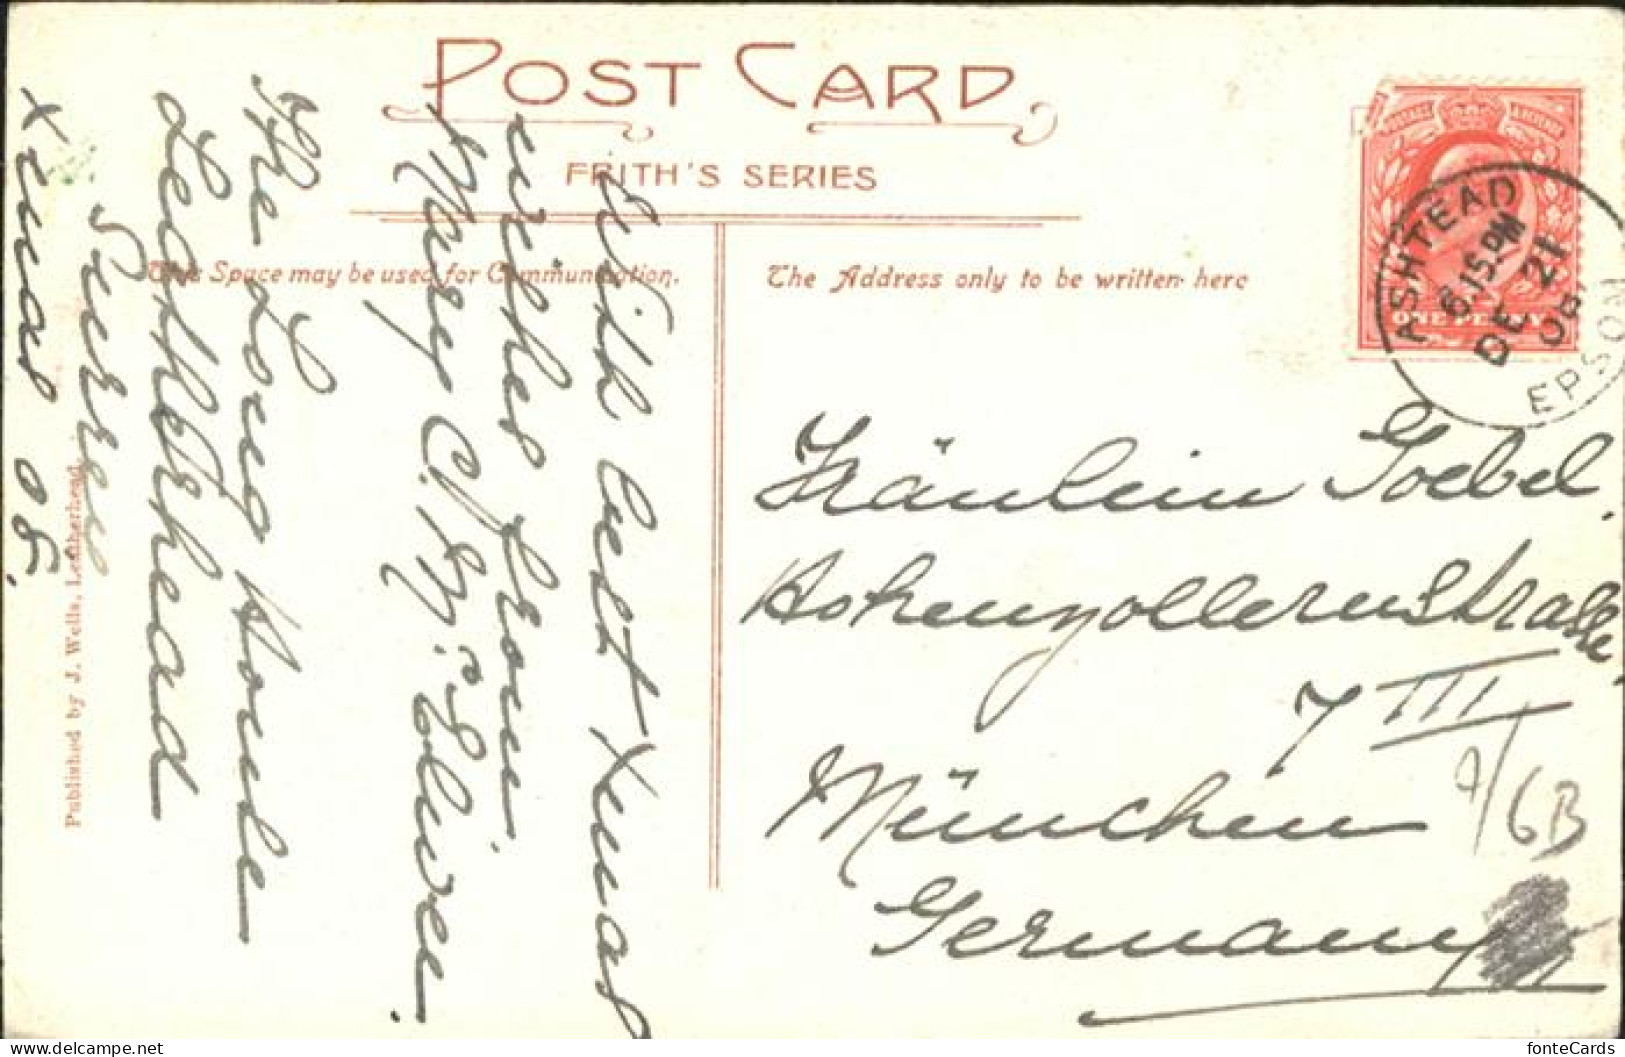 POST CARD
FRITH'S SERIES
This Space may be used for Communication.
The Address only to be written here
ASHTEAD
6.15 PM
DE 21
EPSOM
With best Xmas
wishes from
Mary C.
The Long House
Leatherhead
Surrey
Xmas 05.
Published by J. Wells, Leatherhead
ONE PENNY
Fräulein Goebel.
Hohenzollernstrasse
7 III
München
Germany
6B
fonteCards